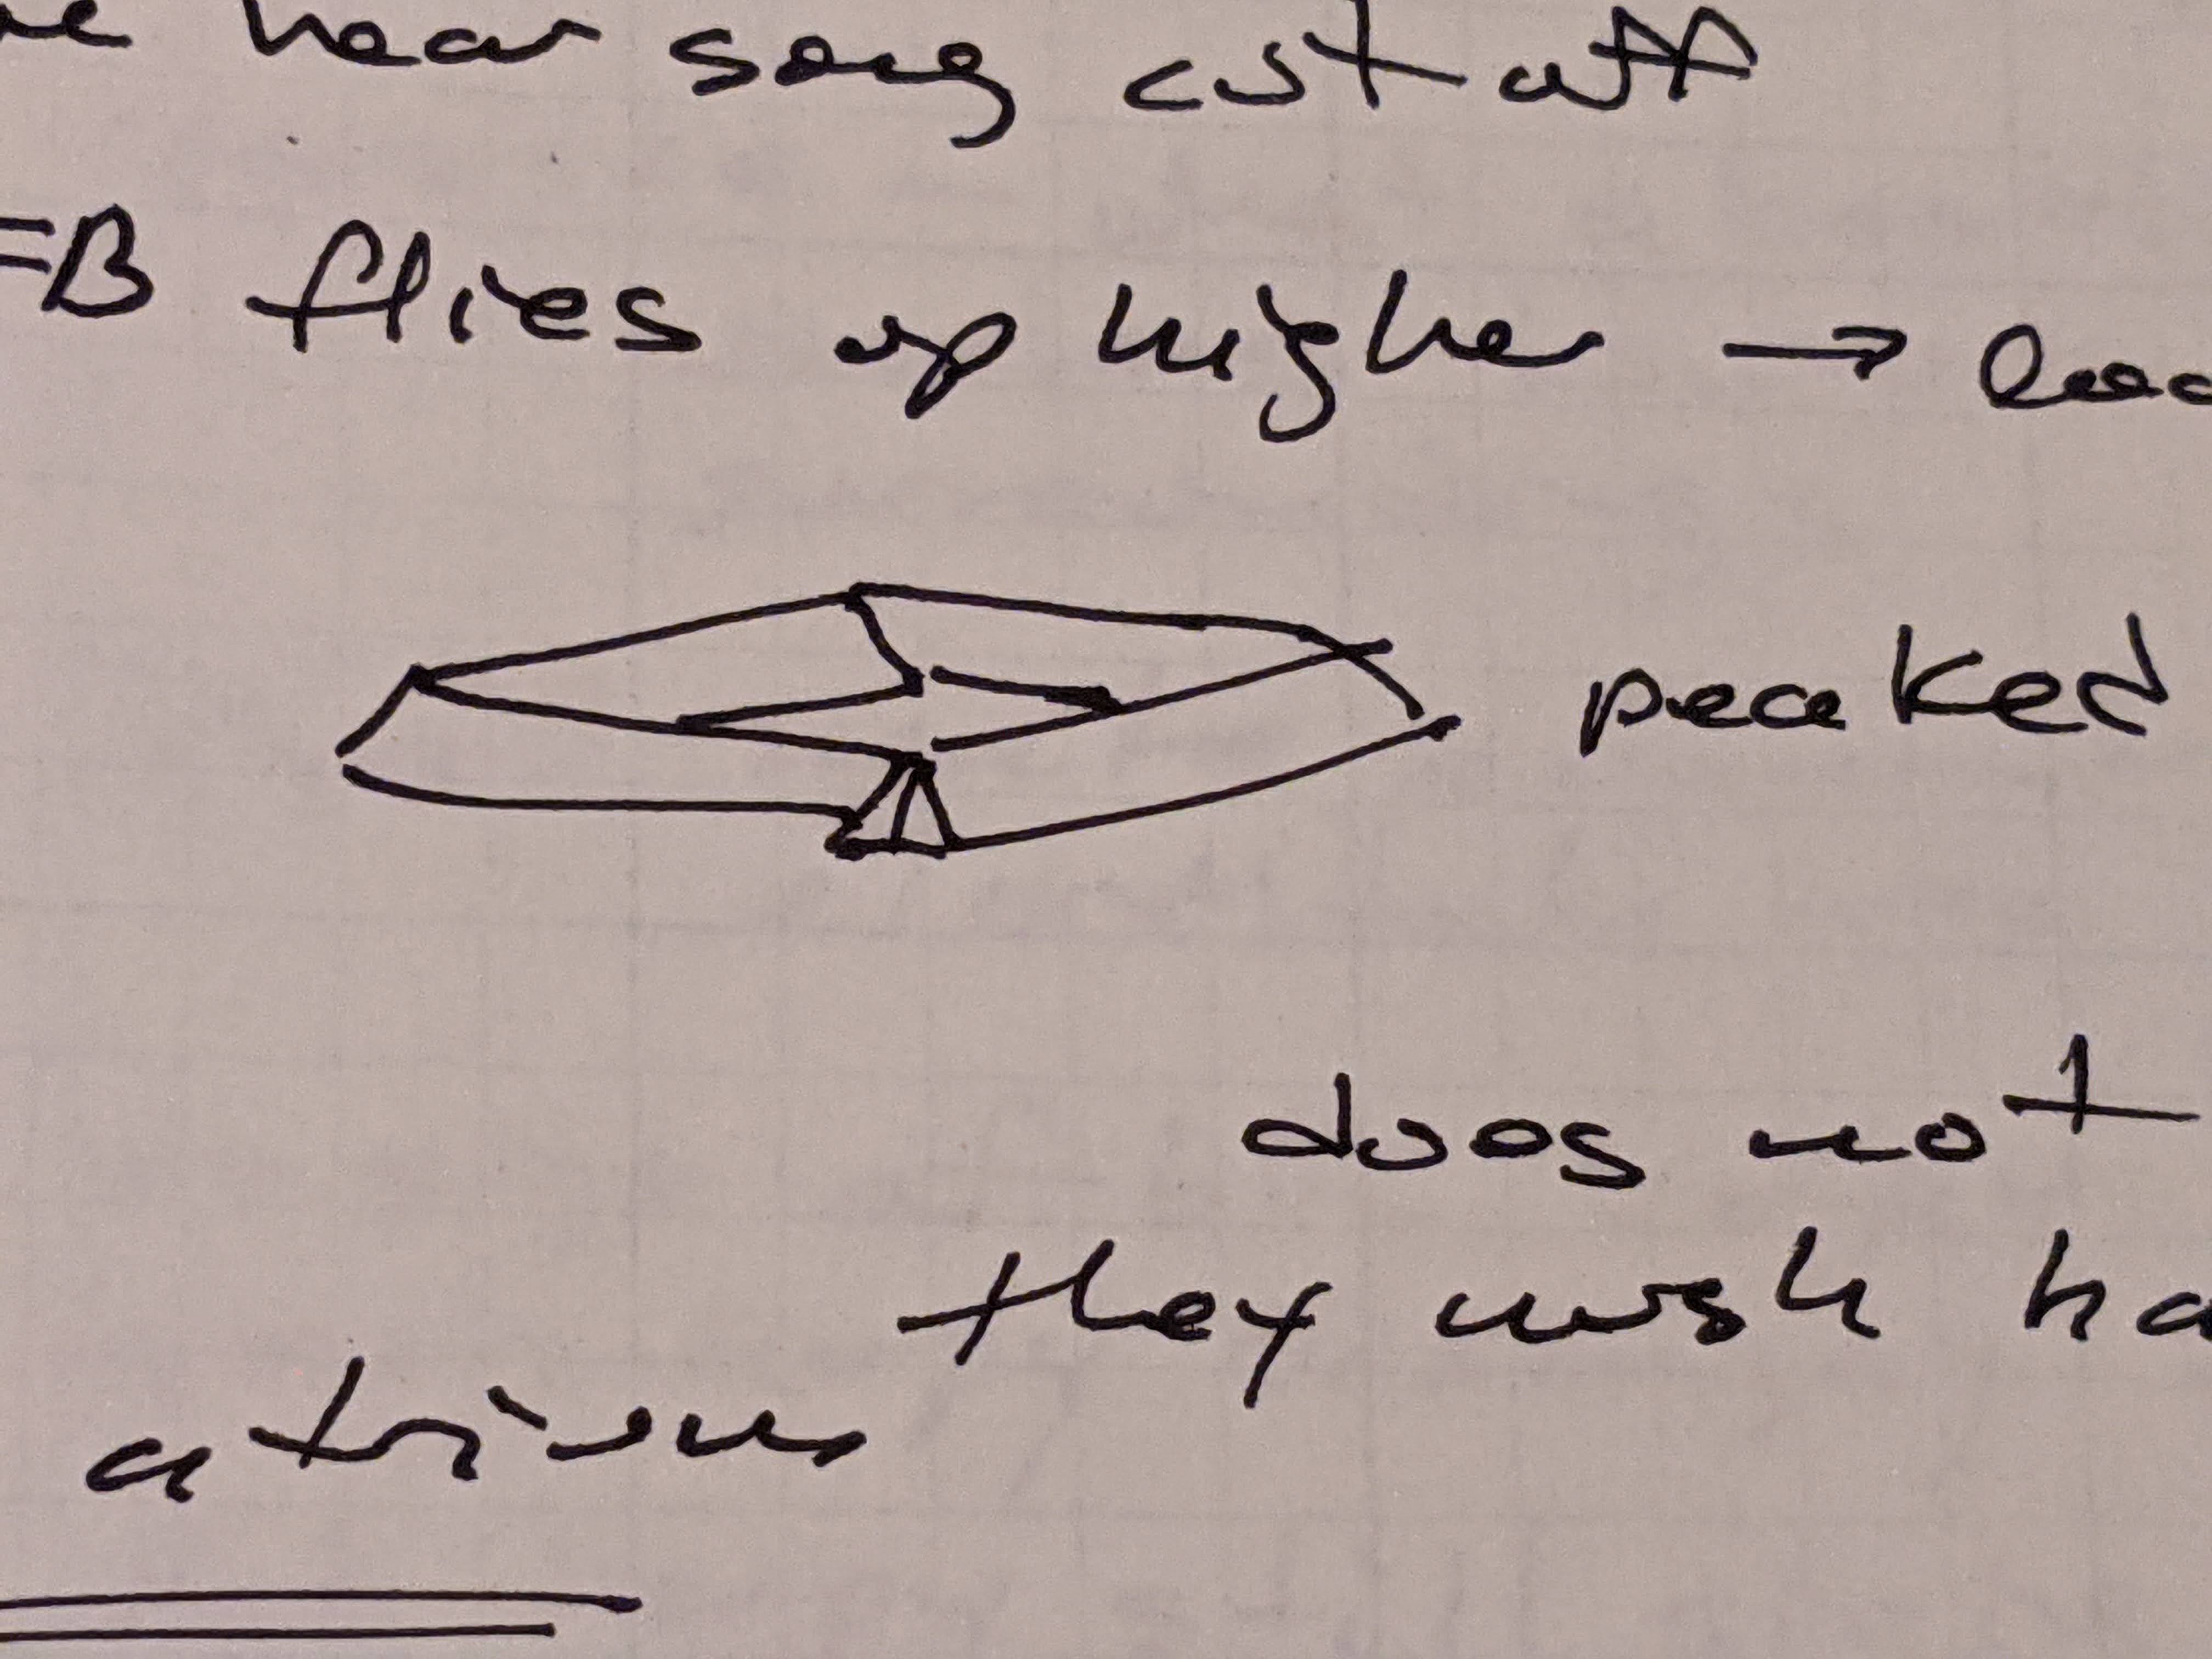 hear song cut off
=B flies up higher →
peaked
does not
they wish ha
atrium